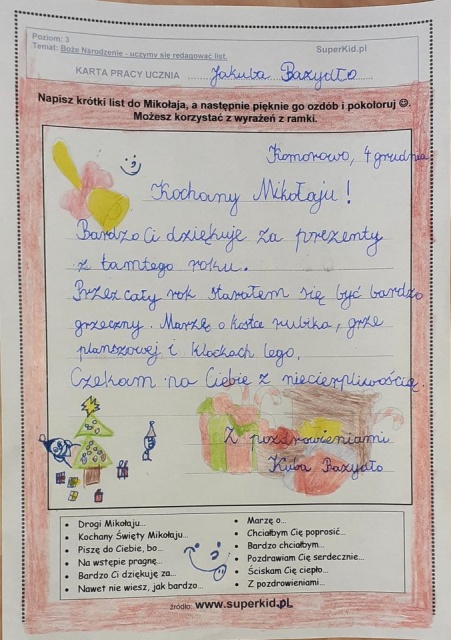 Poziom: 3
Temat: Boże Narodzenie - uczymy się redagować list.
SuperKid.pl
KARTA PRACY UCZNIA ......Jakuba Bazydło......
Napisz krótki list do Mikołaja, a następnie pięknie go ozdób i pokoloruj ☺.
Możesz korzystać z wyrażeń z ramki.
Komorowo, 4 grudnia
Kochany Mikołaju!
Bardzo Ci dziękuję za prezenty
z tamtego roku.
Przez cały rok starałem się być bardzo
grzeczny. Marzę o kostce rubika, grze
planszowej i klockach lego.
Czekam na Ciebie z niecierpliwością.
Z pozdrowieniami
Kuba Bazydło
• Drogi Mikołaju...
• Kochany Święty Mikołaju...
• Piszę do Ciebie, bo...
• Na wstępie pragnę...
• Bardzo Ci dziękuję za...
• Nawet nie wiesz, jak bardzo...
• Marzę o...
• Chciałbym Cię poprosić...
• Bardzo chciałbym...
• Pozdrawiam Cię serdecznie...
• Ściskam Cię ciepło...
• Z pozdrowieniami...
źródło: www.superkid.pL